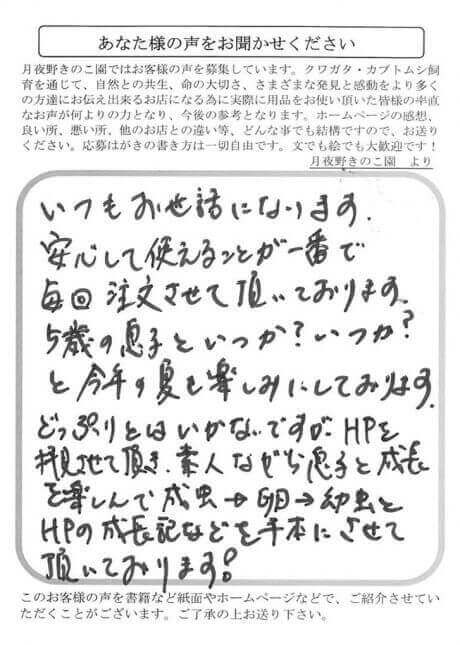 あなた様の声をお聞かせください
月夜野きのこ園ではお客様の声を募集しています。クワガタ・カブトムシ飼
育を通じて、自然との共生、命の大切さ、さまざまな発見と感動をより多く
の方達にお伝え出来るお店になる為に実際に用品をお使い頂いた皆様の率直
なお声が何よりの力となり、今後の参考となります。ホームページの感想、
良い所、悪い所、他のお店との違い等、どんな事でも結構ですので、お送り
ください。応募はがきの書き方は一切自由です。文でも絵でも大歓迎です！
月夜野きのこ園　より
いつもお世話になります.
安心して使えることが一番で
毎回注文させて頂いております.
5歳の息子といつか?いつか?
と今年の夏も楽しみにしております.
どっぷりとはいかないですが、HPを
拝見させて頂き、素人ながら息子と成長
を楽しんで成虫→卵→幼虫と
HPの成長記などを手本にさせて
頂いております!
このお客様の声を書籍など紙面やホームページなどで、ご紹介させてい
ただくことがございます。ご了承の上お送り下さい。